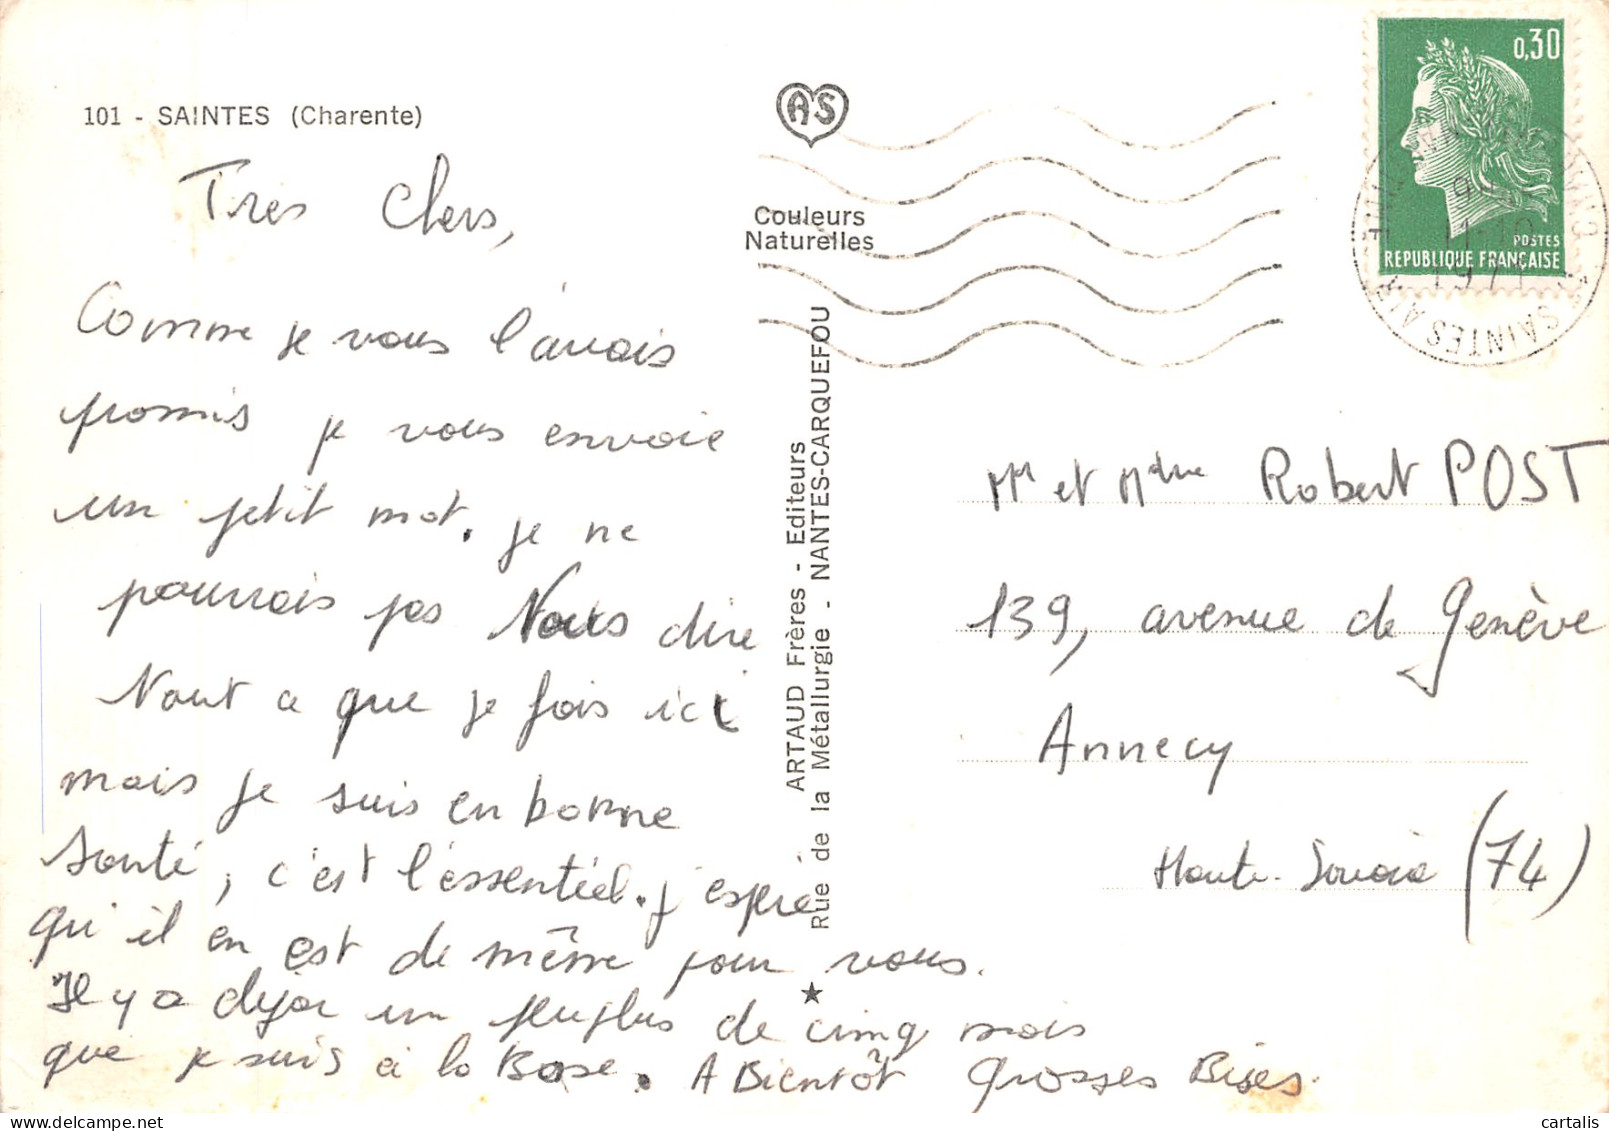 101 - SAINTES (Charente)
Très Chers,
Comme je vous l'avais
promis je vous envoie
un petit mot. je ne
pourrais pas Vous dire
tout ce que je fais ici
mais je suis en bonne
santé, c'est l'essentiel. j'espère
qu'il en est de même pour vous.
Il y a déjà un peu plus de cinq mois
que je suis à la Base. A Bientôt Grosses Bises.
AS
Couleurs
Naturelles
ARTAUD Frères - Editeurs
Rue de la Métallurgie - NANTES-CARQUEFOU
0,30
POSTES
REPUBLIQUE FRANÇAISE
SAINTES AIR
1971
Mr et Mdme Robert POST
139, avenue de Genève
Annecy
Haute-Savoie (74)
cartalis